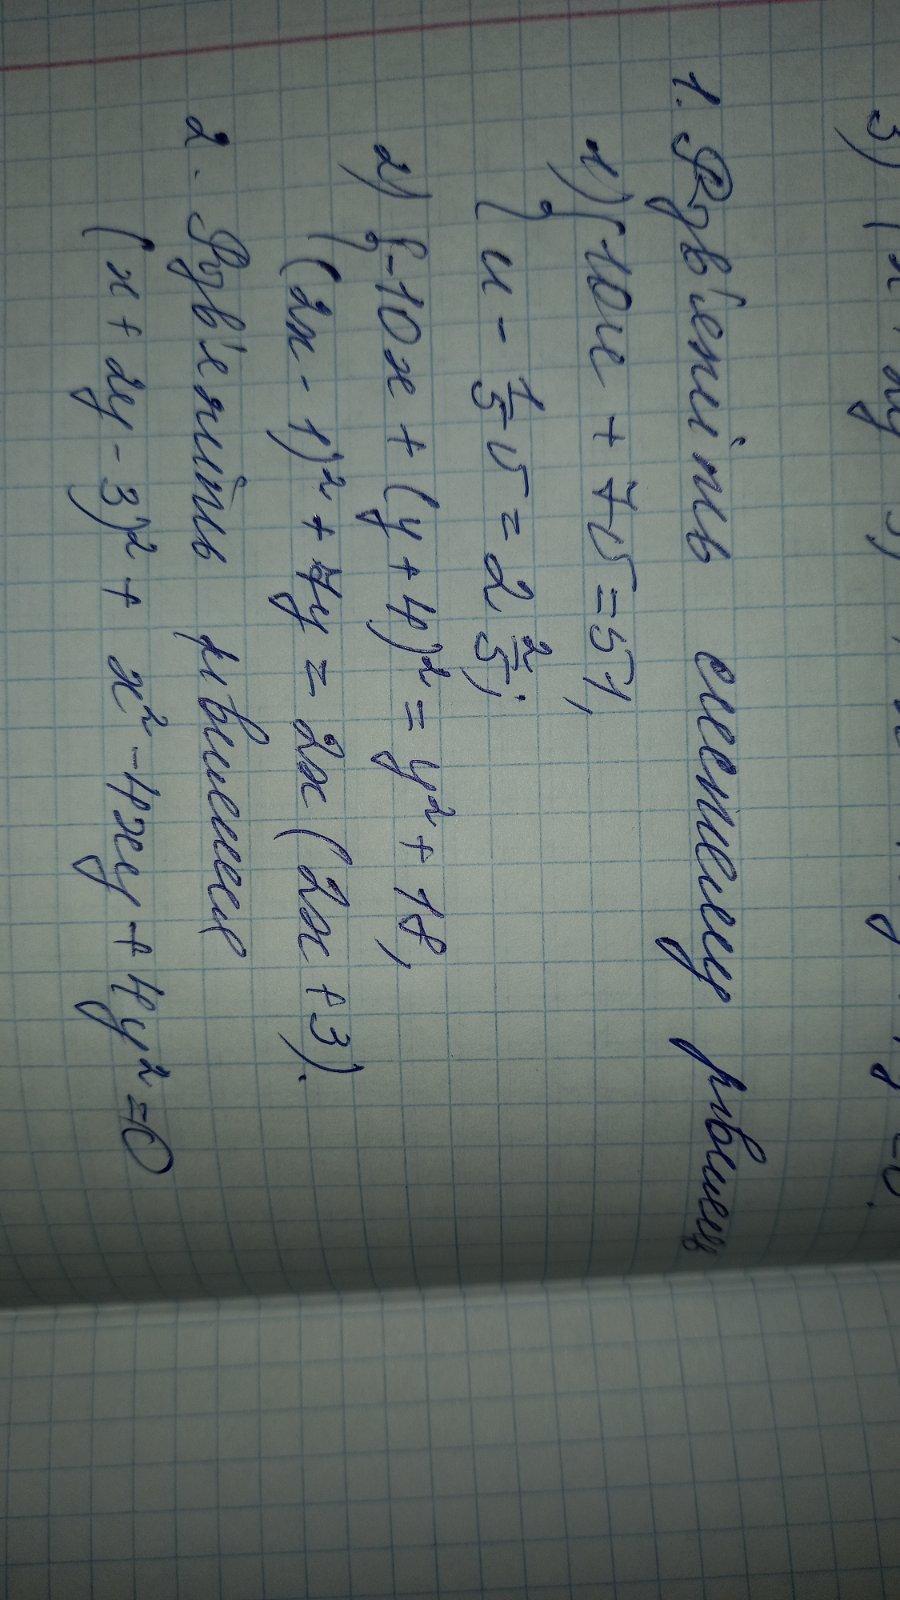 1. Розв'яжіть систему рівнянь
1) { 10u + 7v = 51,
u - 1/5 v = 2 2/5;
2) { -10x + (y + 4)² = y² + 18,
(2x - 1)² + 7y = 2x (2x + 3).
2. Розв'яжіть рівняння
(x + 2y - 3)² + x² - 4xy + 4y² = 0